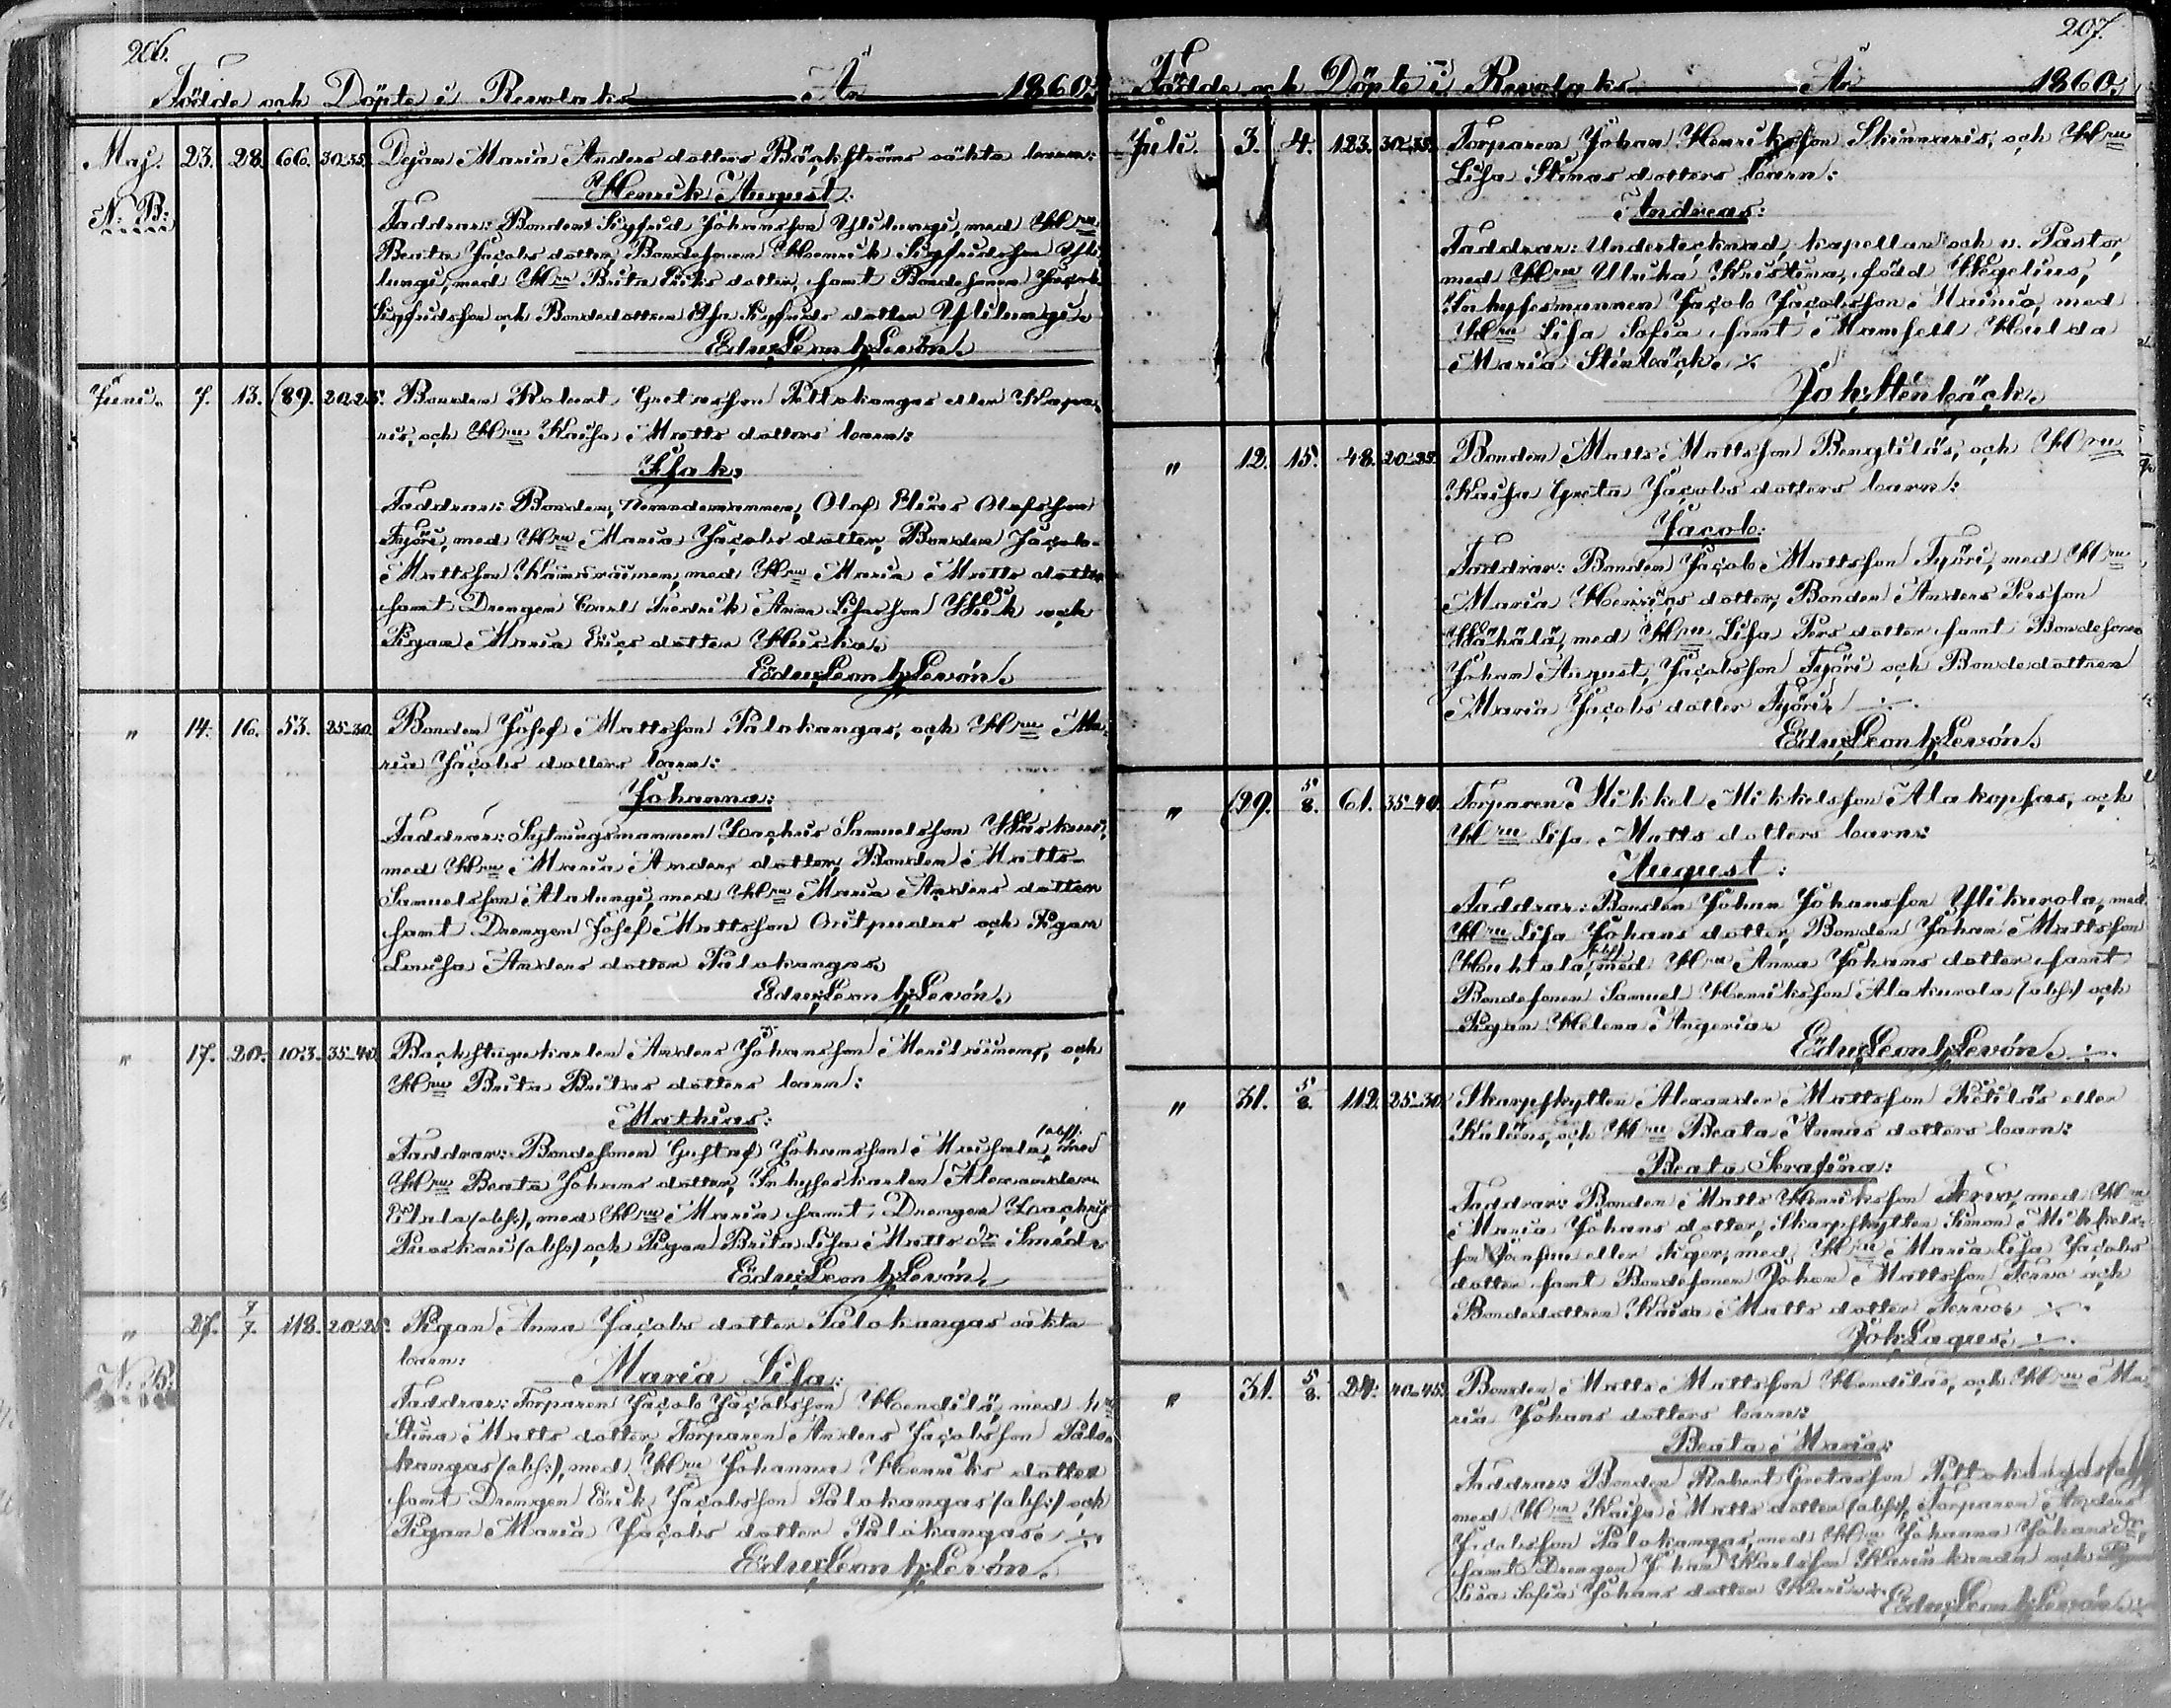 206.
Födde och Döpte i Revolaks År 1860.
Maj. 23. 28. 66. 30-35. Dejan Maria Anders dotters Bäckströms oäkta barn:
N: B:
Henrik August.
Faddrar: Bonden Sigfrid Johansson Ylilungi, med Hru
Beata Jacobs dotter, Bondesonen Henrik Sigfridsson Yli-
lungi, med Hru Brita Eriks dotter, samt Bondesonen Jacob
Sigfridsson och Bondedottren Elsa Sigfrids dotter Ylilungi.
Edv: Leonh: Levón.
Juni. 7. 13. (89. 20-25. Bonden Robert Gretasson Peltokangas eller
och Hru Kaisa Matts dotters barn:
Isak.
Faddrar: Bonden, Nemndemannen, Olof Elias Olofsson
Työri, med Hru Maria Jacobs dotter, Bonden Jacob
Mattsson Kämäräinen, med Hru Maria Matts dotter
samt Drengen Carl Fredrik Anna Lisasson och
Pigan Maria Erics dotter
Edv: Leonh: Levón.
" 14. 16. 53. 25-30. Bonden Josef Mattsson Palokangas, och Hru Ma-
ria Jacobs dotters barn:
Johanna:
Faddrar: Sytningsmannen Zachris Samuelsson
med Hru Maria Anders dotter, Bonden Matts
Samuelsson Alatungi, med Hru Maria Anders dotter
samt Drengen Josef Mattsson Outpudas och Pigan
Lovisa Anders dotter Palokangas.
Edv: Leonh: Levón.
" 17. 20. 103. 35-40. Backstugukarlen Anders Johansson Meriläinens, och
Hru Brita Britas dotters barn:
Mathias:
Faddrar: Bondesonen Gustaf Johansson (abs): med
Hru Beata Johans dotter, Inhyseskarlen Alexander
(abs:), med Hru Maria samt Drengen Zachris
Puoskari (abs:) och Pigan Brita Lisa Matts dr Smed.
Edv: Leonh: Levón.
" 27. 7/7. 118. 20-25. Pigan Anna Jacobs dotter Palokangas oäkta
N: B: barn:
Maria Lisa:
Faddrar: Torparen Jacob Jacobsson Hendilä, med hru
Stina Matts dotter, Torparen Anders Jacobsson Palo-
kangas (abs:), med Hru Johanna Henriks dotter
samt Drengen Erik Jacobsson Palokangas (abs:) och
Pigan Maria Jacobs dotter Palokangas.
Edv: Leonh: Levón.
207.
Födde och Döpte i Revolaks År 1860.
Juli. 3. 4. 123. 30-35. Torparen Johan Henriksson Skinnaris, och Hru
Lisa Stinas dotters barn:
Andreas:
Faddrar: Undertecknad, kapellan och v. Pastor,
med Hru Ulrika Kristina, född Wegelius,
Inhysesmannen Jacob Jacobsson Mainio, med
Hru Lisa Sofia samt Mamsell Hulda
Maria Stenbäck.
Joh: Stenbäck.
" 12. 15. 48. 20-25. Bonden Matts Mattsson Bengtiläs, och Hru
Kaisa Greta Jacobs dotters barn:
Jacob:
Faddrar: Bonden Jacob Mattsson Työri, med Hru
Maria Henrics dotter, Bonden Anders Persson
Wähälä, med Hru Lisa Pers dotter samt Bondesonen
Johan August Jacobsson Työri och Bondedottren
Maria Jacobs dotter Työri.
Edv: Leonh: Levón.
" (29. 5/8. 61. 35-40. Torparen Mikkel Mikkelsson Alakopsas, och
Hru Lisa Matts dotters barn:
August:
Faddrar: Bonden Johan Johansson Ylikurola, med
Hru Lisa Johans dotter, Bonden Johan Mattsson
Huhtala, (abs) med Hru Anna Johans dotter samt
Bondesonen Samuel Henriksson Alakurola (abs:) och
Pigan Helena Angeria.
Edv: Leonh: Levón.
" 31. 5/8. 112. 25-30. Skarpskytten Alexander Mattsson Pietiläs eller
och Hru Beata Annas dotters barn:
Beata Serafina:
Faddrar: Bonden Matts Henriksson Tervo, med Hru
Maria Johans dotter, Skarpskytten Simon Mikkels-
son Joensuu eller Tiger, med Hru Maria Lisa Jacobs
dotter samt Bondesonen Johan Mattsson Tervo och
Bondedottren Kaisa Matts dotter Tervo.
Joh: Lagus.
" 31. 5/8. 24. 40-45. Bonden Matts Mattsson Hendiläs, och Hru Ma-
ria Johans dotters barn:
Beata Maria:
Faddrar: Bonden Robert Gretasson Peltokangas (abs)
med Hru Kaisa Matts dotter (abs:), Torparen Anders
Jacobsson Palokangas, med Hru Johanna Johans dr,
samt Drengen Johan Karlsson och Pigan
Lisa Sofia Johans dotter
Edv: Leonh: Levón.